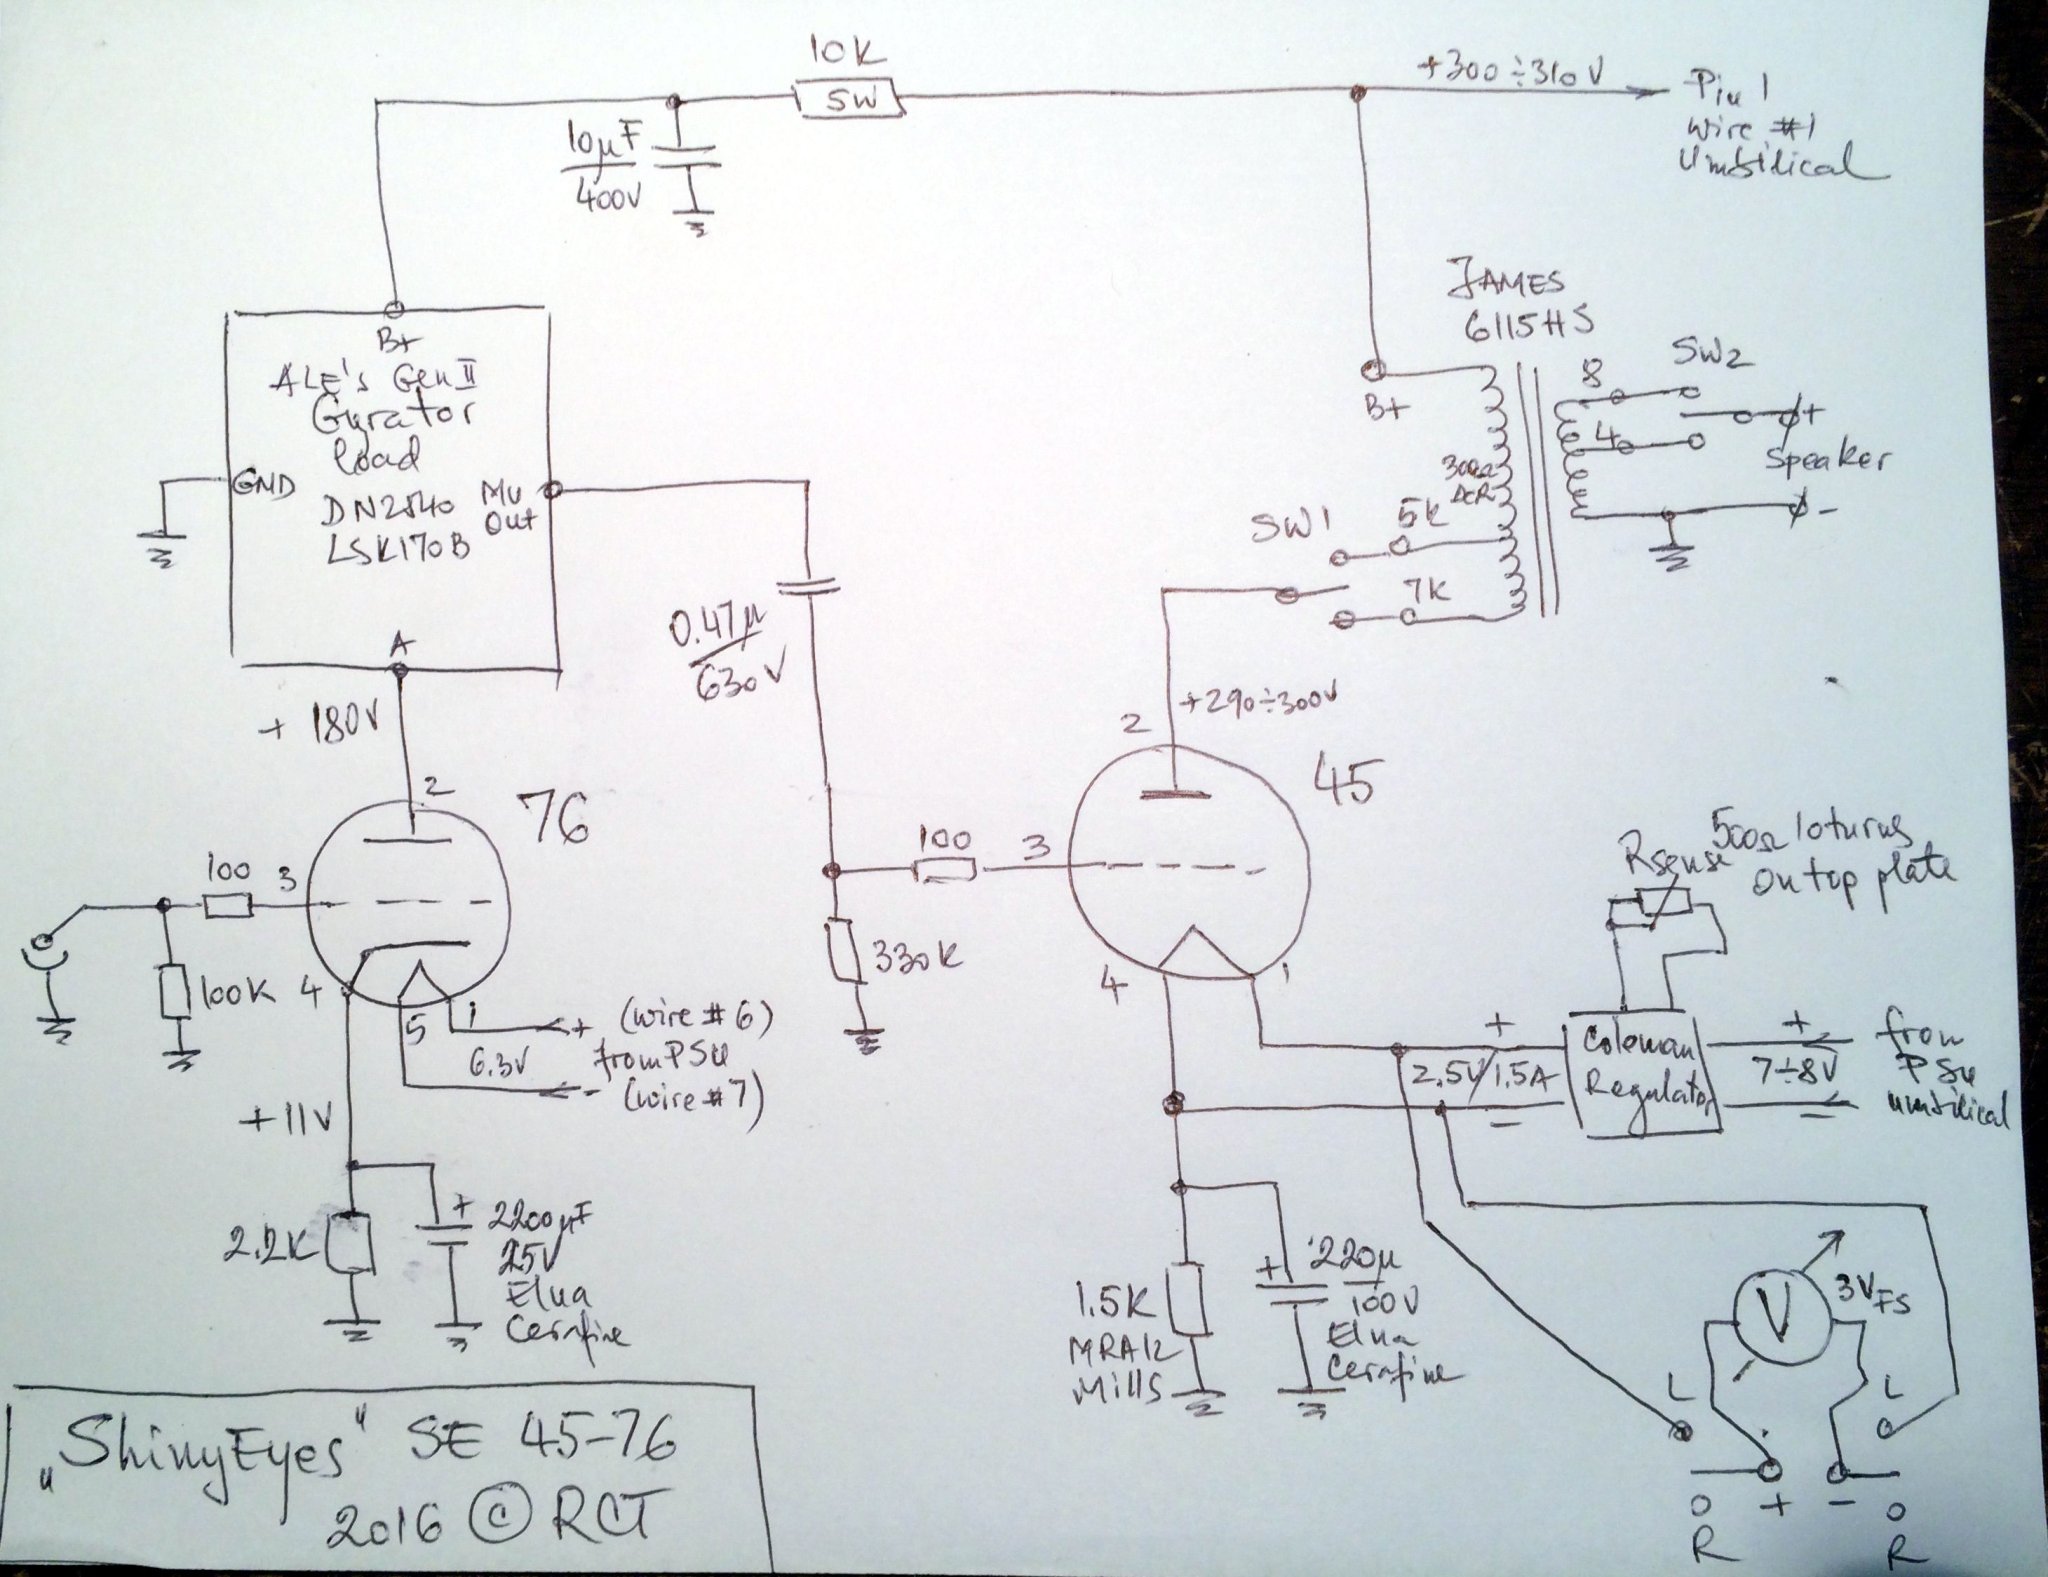 10K
5W
+300÷310V
Pin 1
Wire #1
Umbilical
10µF
400V
B+
ALE's Gen II
Gyrator
load
GND
DN2540
LSK170B
Mu
Out
A
+180V
0.47µ
630V
JAMES
6115HS
B+
300Ω
DCR
SW1
5K
7K
8
4
SW2
+
Speaker
-
+290÷300V
2
45
100
3
4
1
330K
2
76
100
3
100K
4
5
1
+ (wire #6)
6.3V
from PSU
- (wire #7)
+11V
2.2K
+
2200µF
25V
Elna
Cerafine
Rsense
500Ω 10turns
On top plate
+
2.5V/1.5A
-
Coleman
Regulator
+
7÷8V
-
from
PSU
umbilical
1.5K
MRA12
Mills
+
220µ
100V
Elna
Cerafine
V
3VFS
L
L
+
-
R
R
"ShinyEyes" SE 45-76
2016 © RCT